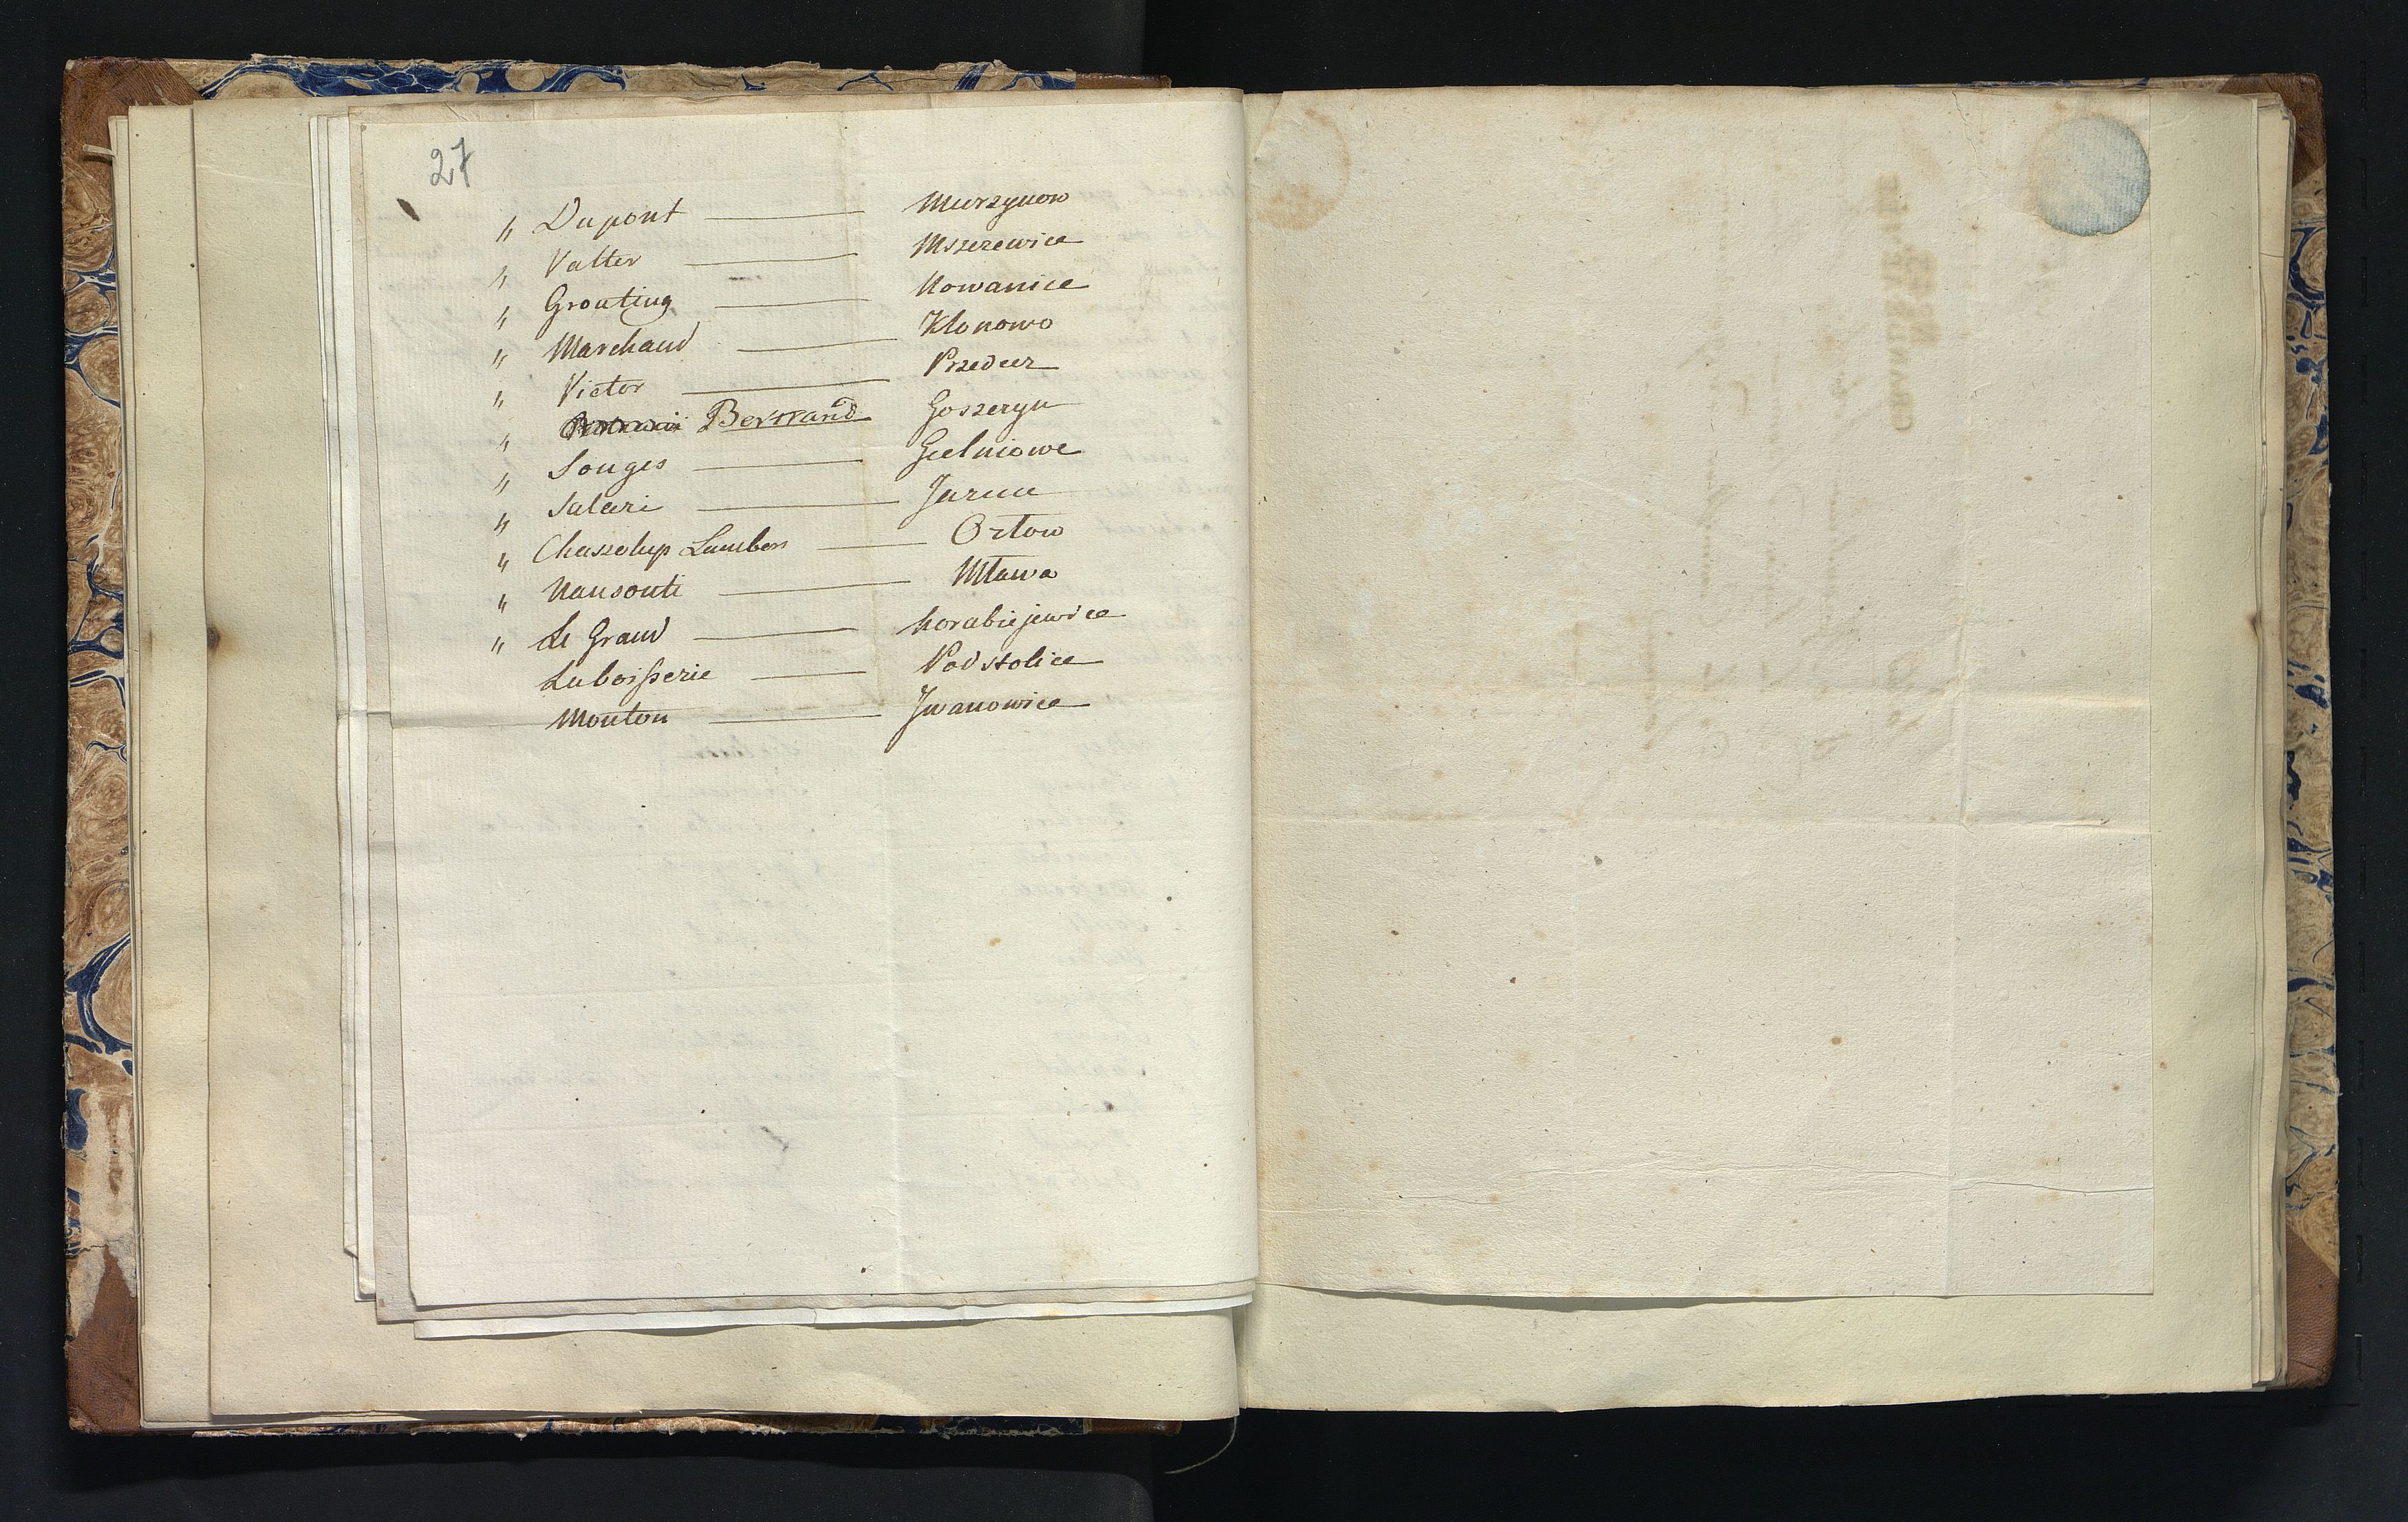 27
" Dupont — Murzynow
" Valter — Mszczewice
" Grouting — Nowanice
" Marchand — Klonowo
" Victor — Przedecz
" Bertrand Goszczyn
" Songis — Gielniowe
" Salari — Jarnice
" Chasselup Laubon — Orłow
" Nansouti — Mława
" Le Grand — Korabiejewice
Laboisserie — Podstolice
Mouton — Jwanowice